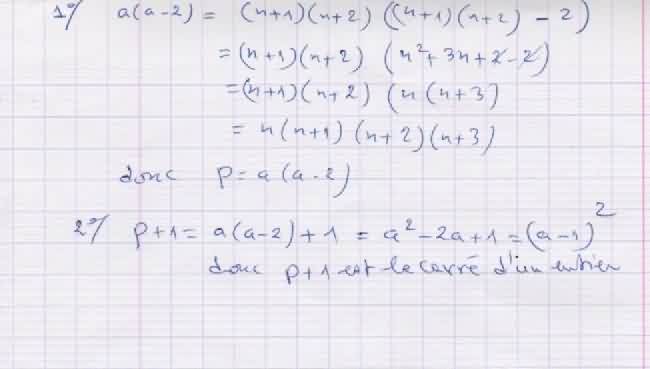 1°/ a(a-2) = (n+1)(n+2) ((n+1)(n+2) - 2)
= (n+1)(n+2) (n²+3n+2-2)
=(n+1)(n+2) (n(n+3)
= n(n+1)(n+2)(n+3)
donc p=a(a-2)
2°/ p+1= a(a-2)+1 = a²-2a+1=(a-1)²
donc p+1 est le carré d'un entier